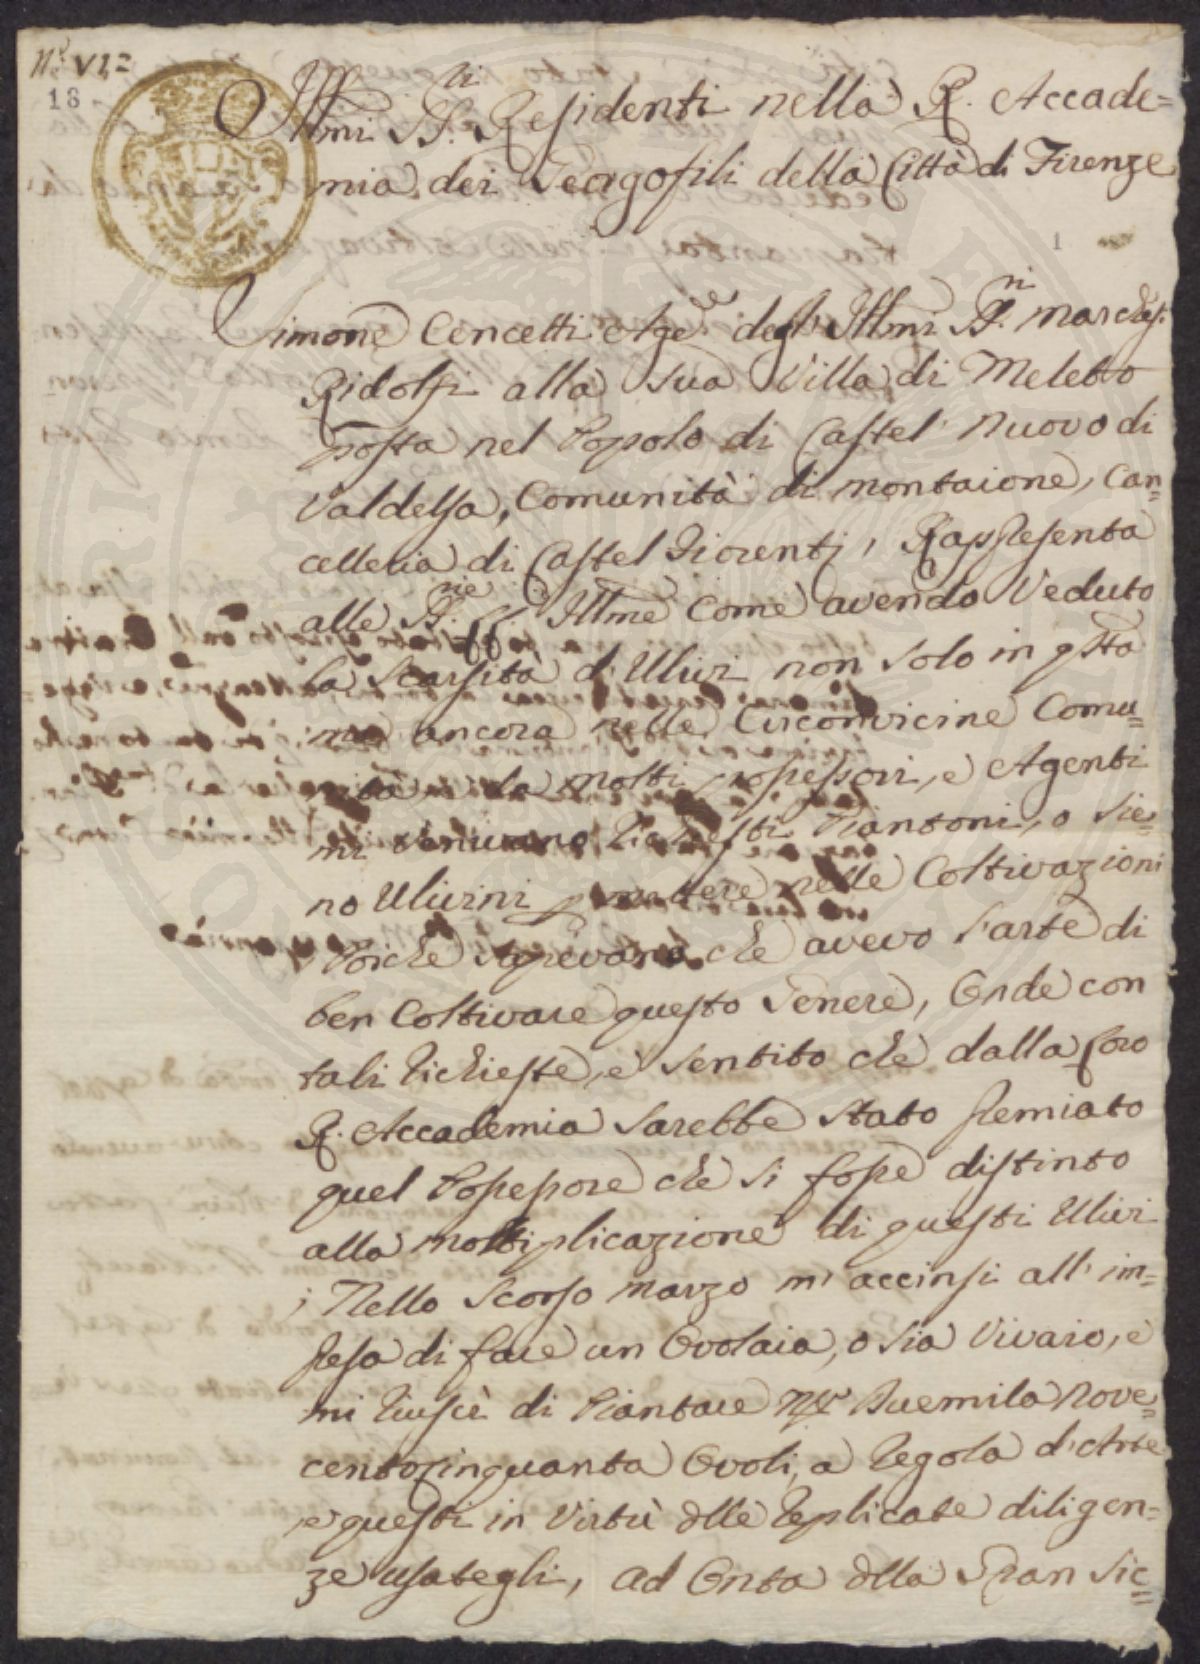 N.° VI=
18
Ill̃mi SS.ri Residenti nella R. Accade=
mia dei Geogofili della Città di Firenze
1
Simone Cencetti Age.e degl' Ill̃mi SS.ri March.si
Ridolfi alla Sua Villa di Meleto
posta nel Popolo di Castel' Nuovo di
Valdelsa, Comunità di Montaione, Can=
celleria di Castel Fiorent.o, Rappresenta
alle SS.rie LL. Ill̃me Come avendo Veduto
la Scarsità d'Ulivi non Solo in q̃sta
ma ancora nelle Circonvicine Comu=
nità, da molti possessori, e Agenti
mi venivano Richiesti Piantoni, o Sie=
no Ulivini p mettere nelle Coltivazioni
Poichè Sapevano che avevo l'arte di
ben Coltivare questo Genere, Onde con
tali Richieste, e Sentito che dalla Loro
R. Accademia Sarebbe Stato premiato
quel Possessore che Si fosse distinto
alla moltiplicazione di questi Ulivi
; Nello Scorso Marzo m'accinsi all'im=
presa di fare un Ovolaia, o Sia Vivaio, e
mi Riuscì di Piantare N.° Duemila Nove=
centocinquanta Ovoli, a Regola d'Arte
e questi in Virtù dlle Replicate diligen=
ze usategli, ad Onta dlla Gran Sic=